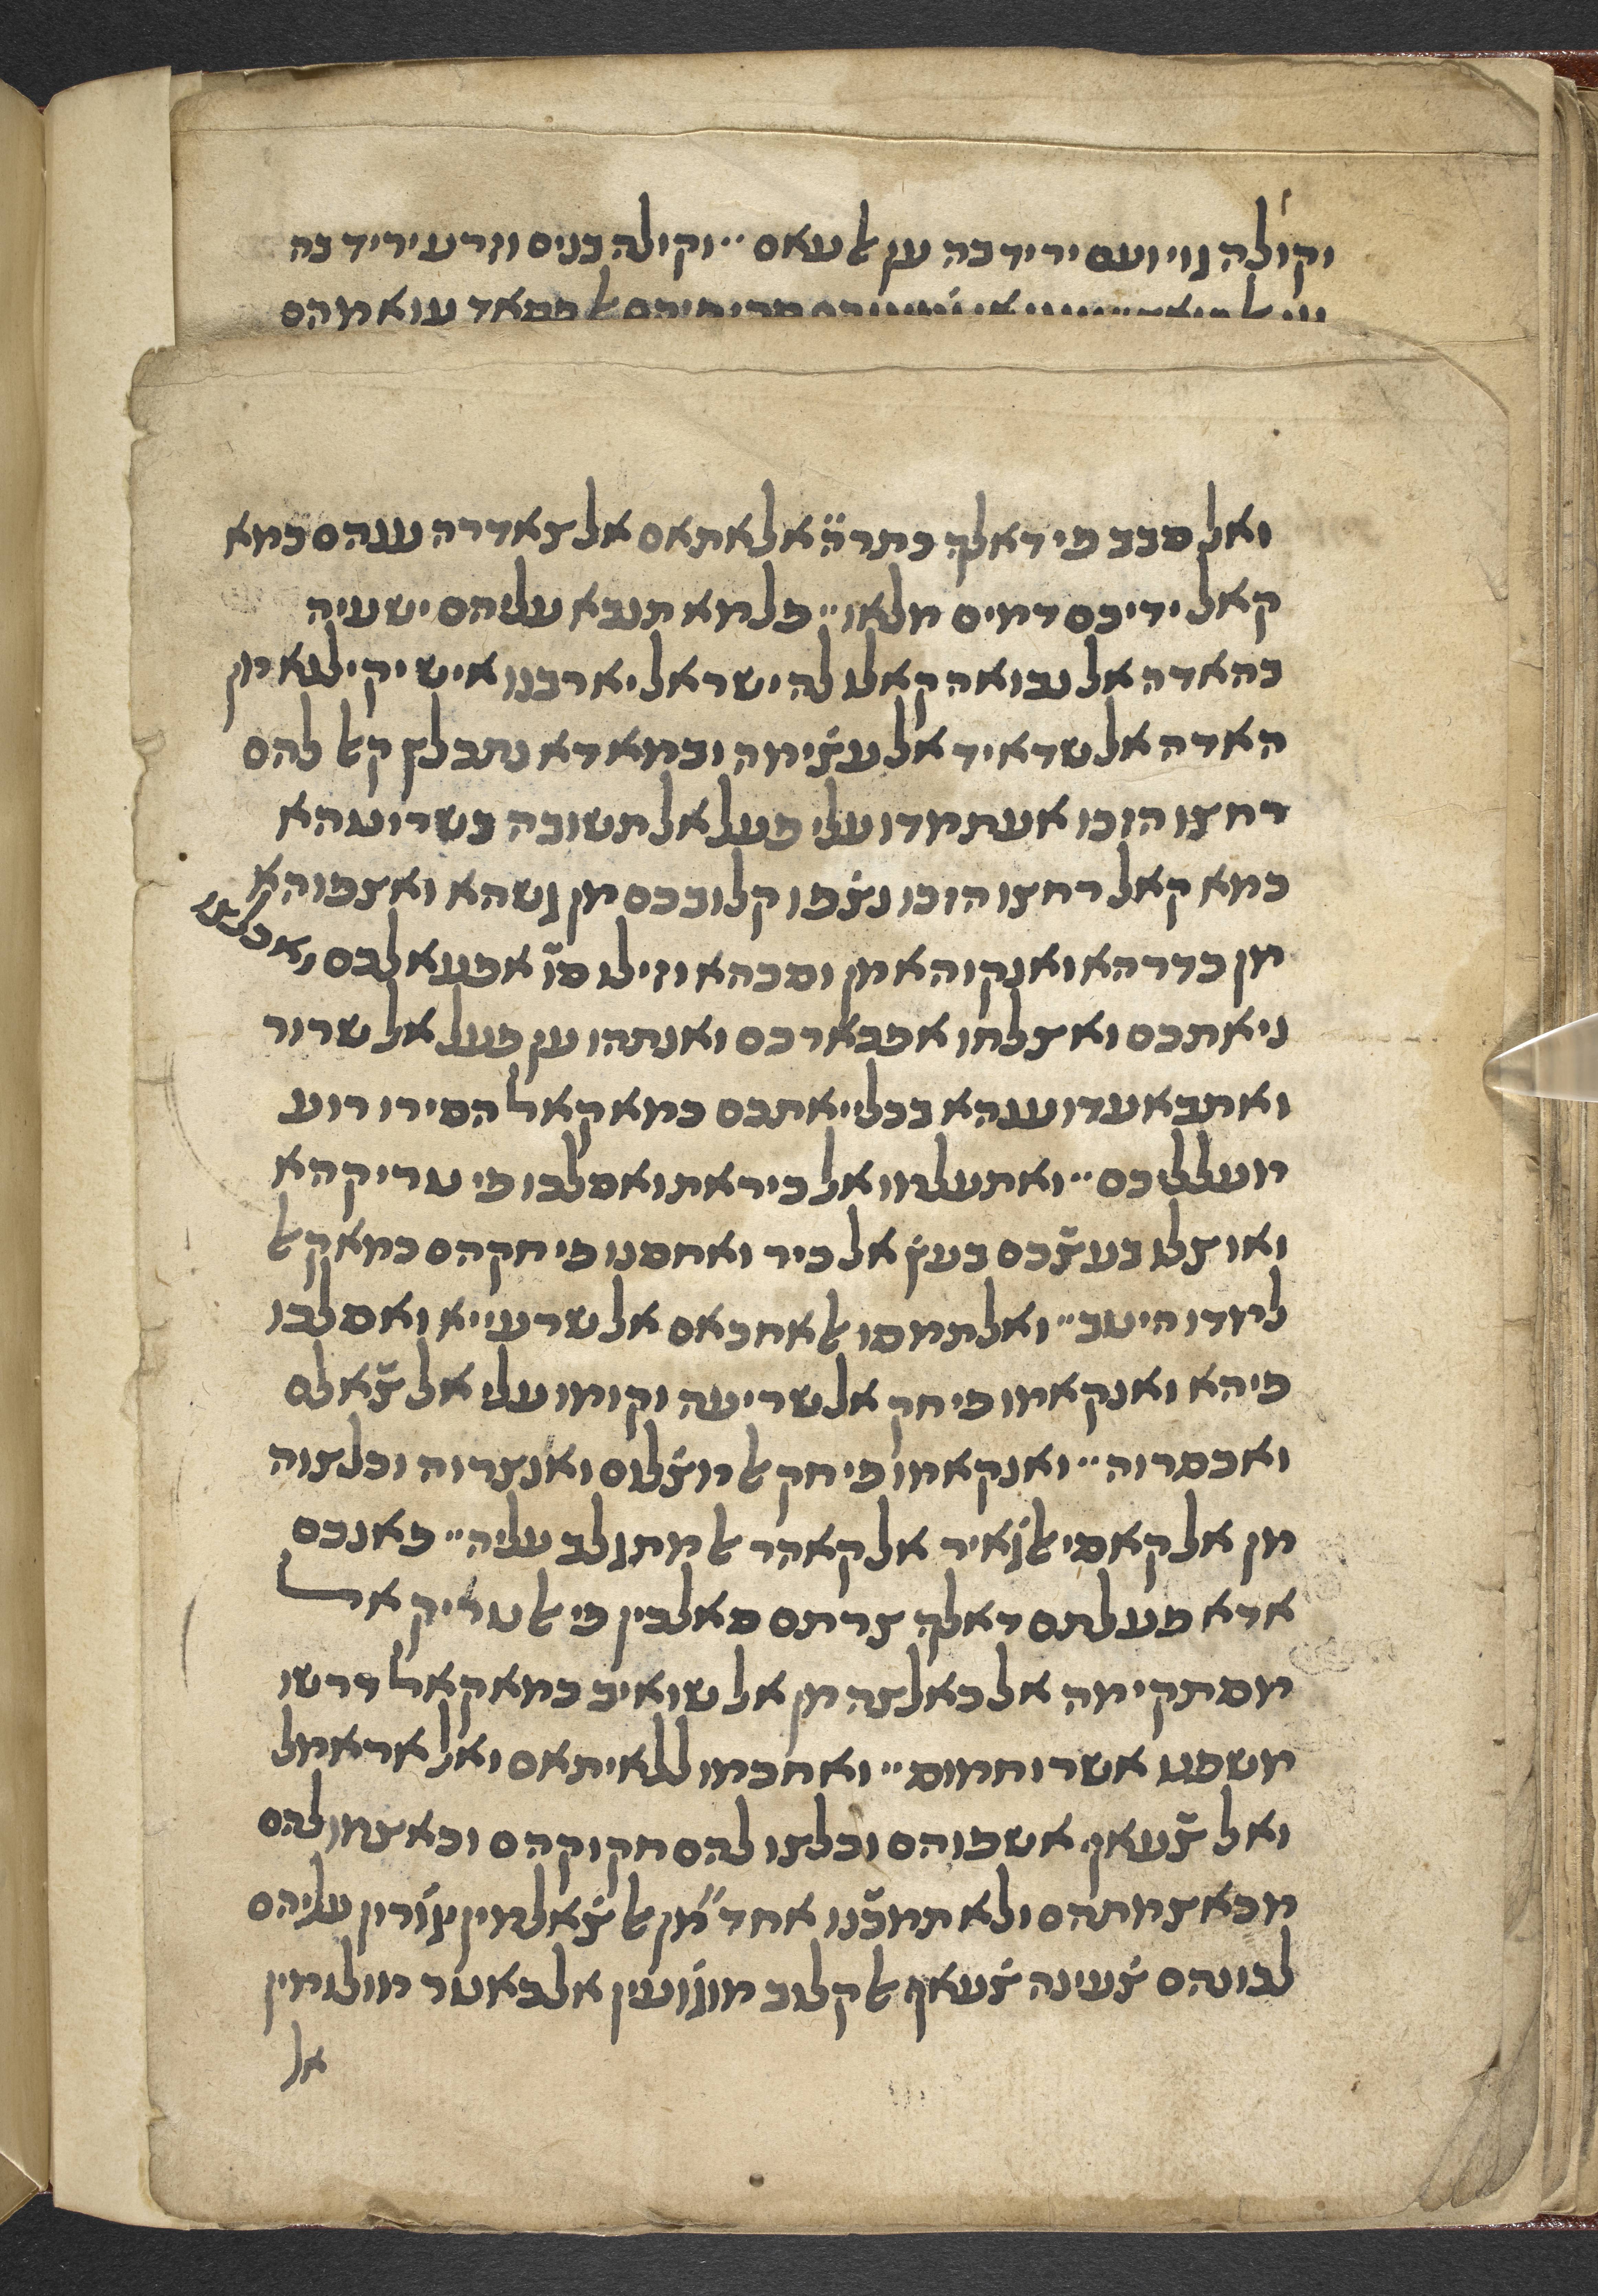 וקולה גוי ועם יריד בה ען אלעאם ״ וקולה בנים וזרע יריד בה
ואלסבב פי דאלך כתרה̈ אלאתאם אלצאדרה ענהם כמא
קאל ידיכם דמים מלאו ״ פלמא תנבא עליהם ישעיה
בהאדה אלנבואה קאלו לה ישראל יא רבנו איש יקילנא מן
האדה אלשדאיד אלעצׄימה ובמאדא נתכלץ קאל להם
רחצו הזכו אעתמדו עלי פעל אלתשובה בשרוטהא
כמא קאל רחצו הזכו נצׄפו קלובכם מן גשהא ואצפוהא
מן כדרהא ואנקוהא מן וסכהא וזילו סו̈ אפעאלכם ואכלצו
ניאתכם ואצלחו אפכארכם ואנתהו ען פעל אלשרור
ואתבאעדו ענהא בכלייאתכם כמא קאל הסירו רוע
מעלליכם ״ ואתעלמו אלכיראת ואסלכו פי טריקהא
ואוצלו בעצׄכם בעץׄ אלכיר ואחסנו פי חקהם כמא קאל
למדו היטב ״ ואלתמסו אלאחכאם אלשרעייא ואסלכו
פיהא ואנקאמו פי חק אלשריעה וקומו עלי אלצׄאלם
ואכסרוה ״ ואנקאמו פי חק אלמצׄלום ואנצרוה וכלצוה
מן אלקאסי אלגׄאיר אלקאהר אלמתגלב עליה ״ פאנכם
אדא פעלתם דאלך צרתם סאלכין פי אלטריק אל
מסתקימה אלכאלצה מן אלשואיב כמא קאל דרשו
משפט אשרו חמוץ ״ ואחכמו ללאיתאם ואלאראמל
ואלצׄעאף אשפוהם וכלצו להם חקוקהם וכאצמו להם
מכאצמתהם ולא תמכׄנו אחד מן אלצׄאלמין יגׄורון עליהם
לכונהם צׄעינה צׄעאף אלקלוב מוגׄועין אלכאטר מולומין
אל